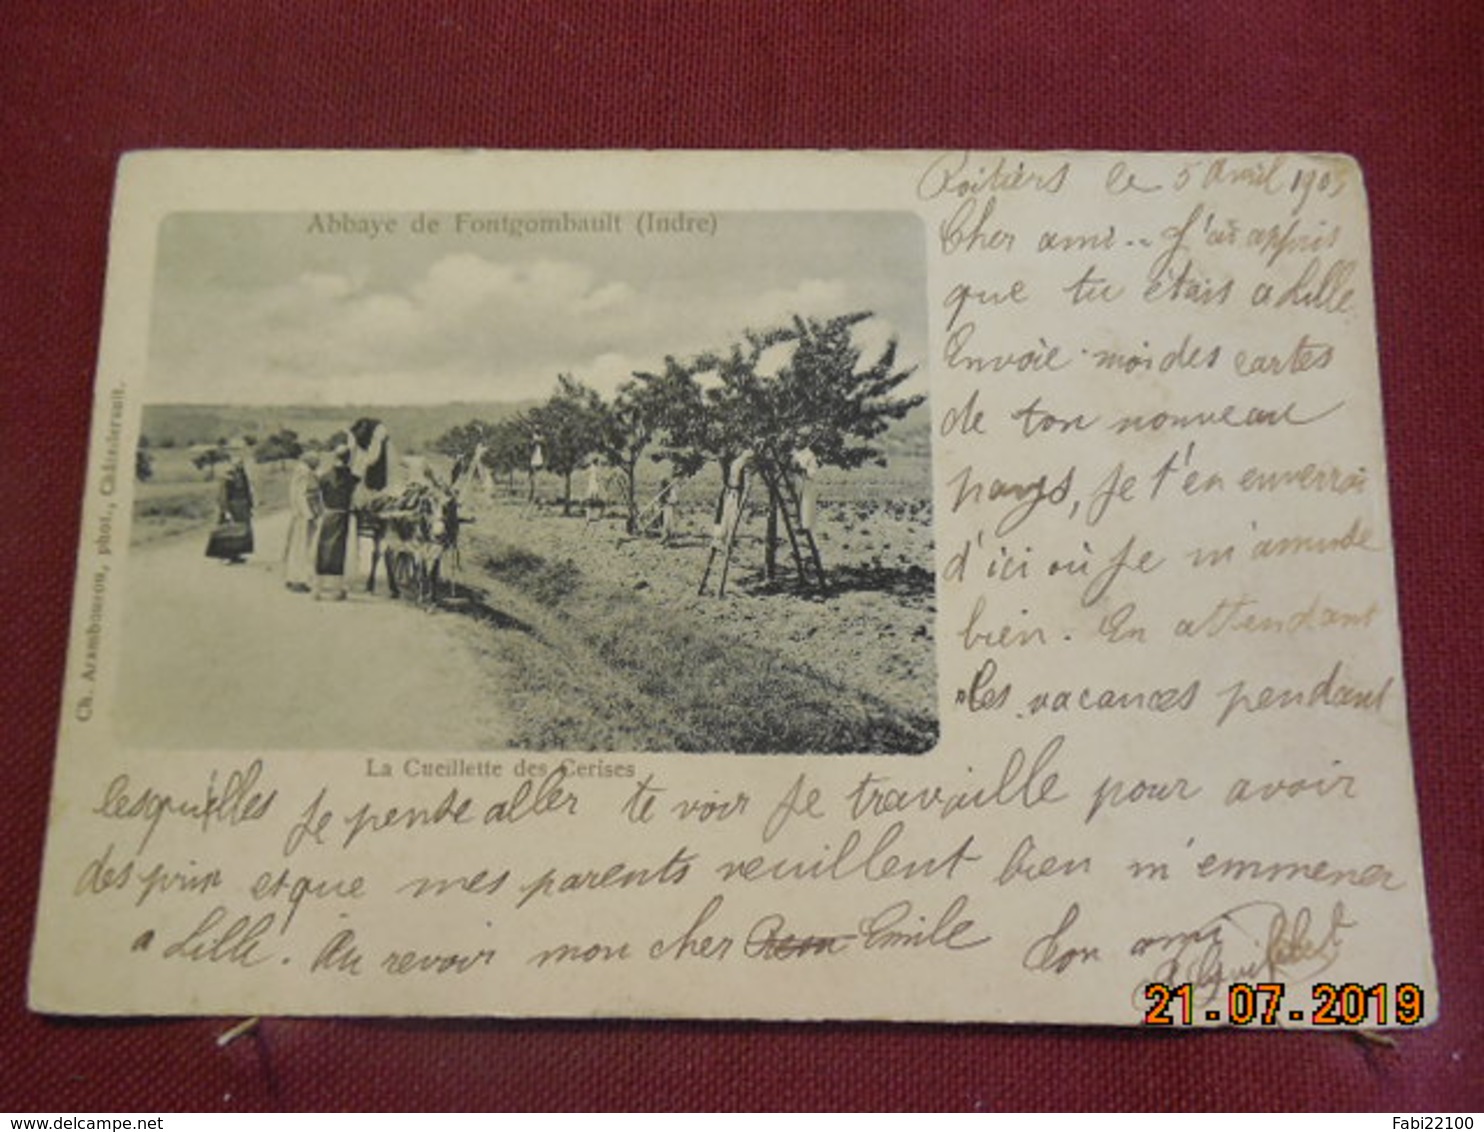 Poitiers le 5 Avril 1903
Cher ami.. J'ai appris
que tu étais a Lille
Envoie-moi des cartes
de ton nouveau
pays, Je t'en enverrai
d'ici où Je m'amuse
bien. En attendant
les vacances pendant
lesquelles Je pense aller te voir Je travaille pour avoir
des prix et que mes parents veuillent bien m'emmener
a Lille. Au revoir mon cher Emile Ton ami
Abbaye de Fontgombault (Indre)
La Cueillette des Cerises
Ch. Arambourou, phot., Châtelerault.
21.07.2019
delcampe.net
Fabi22100